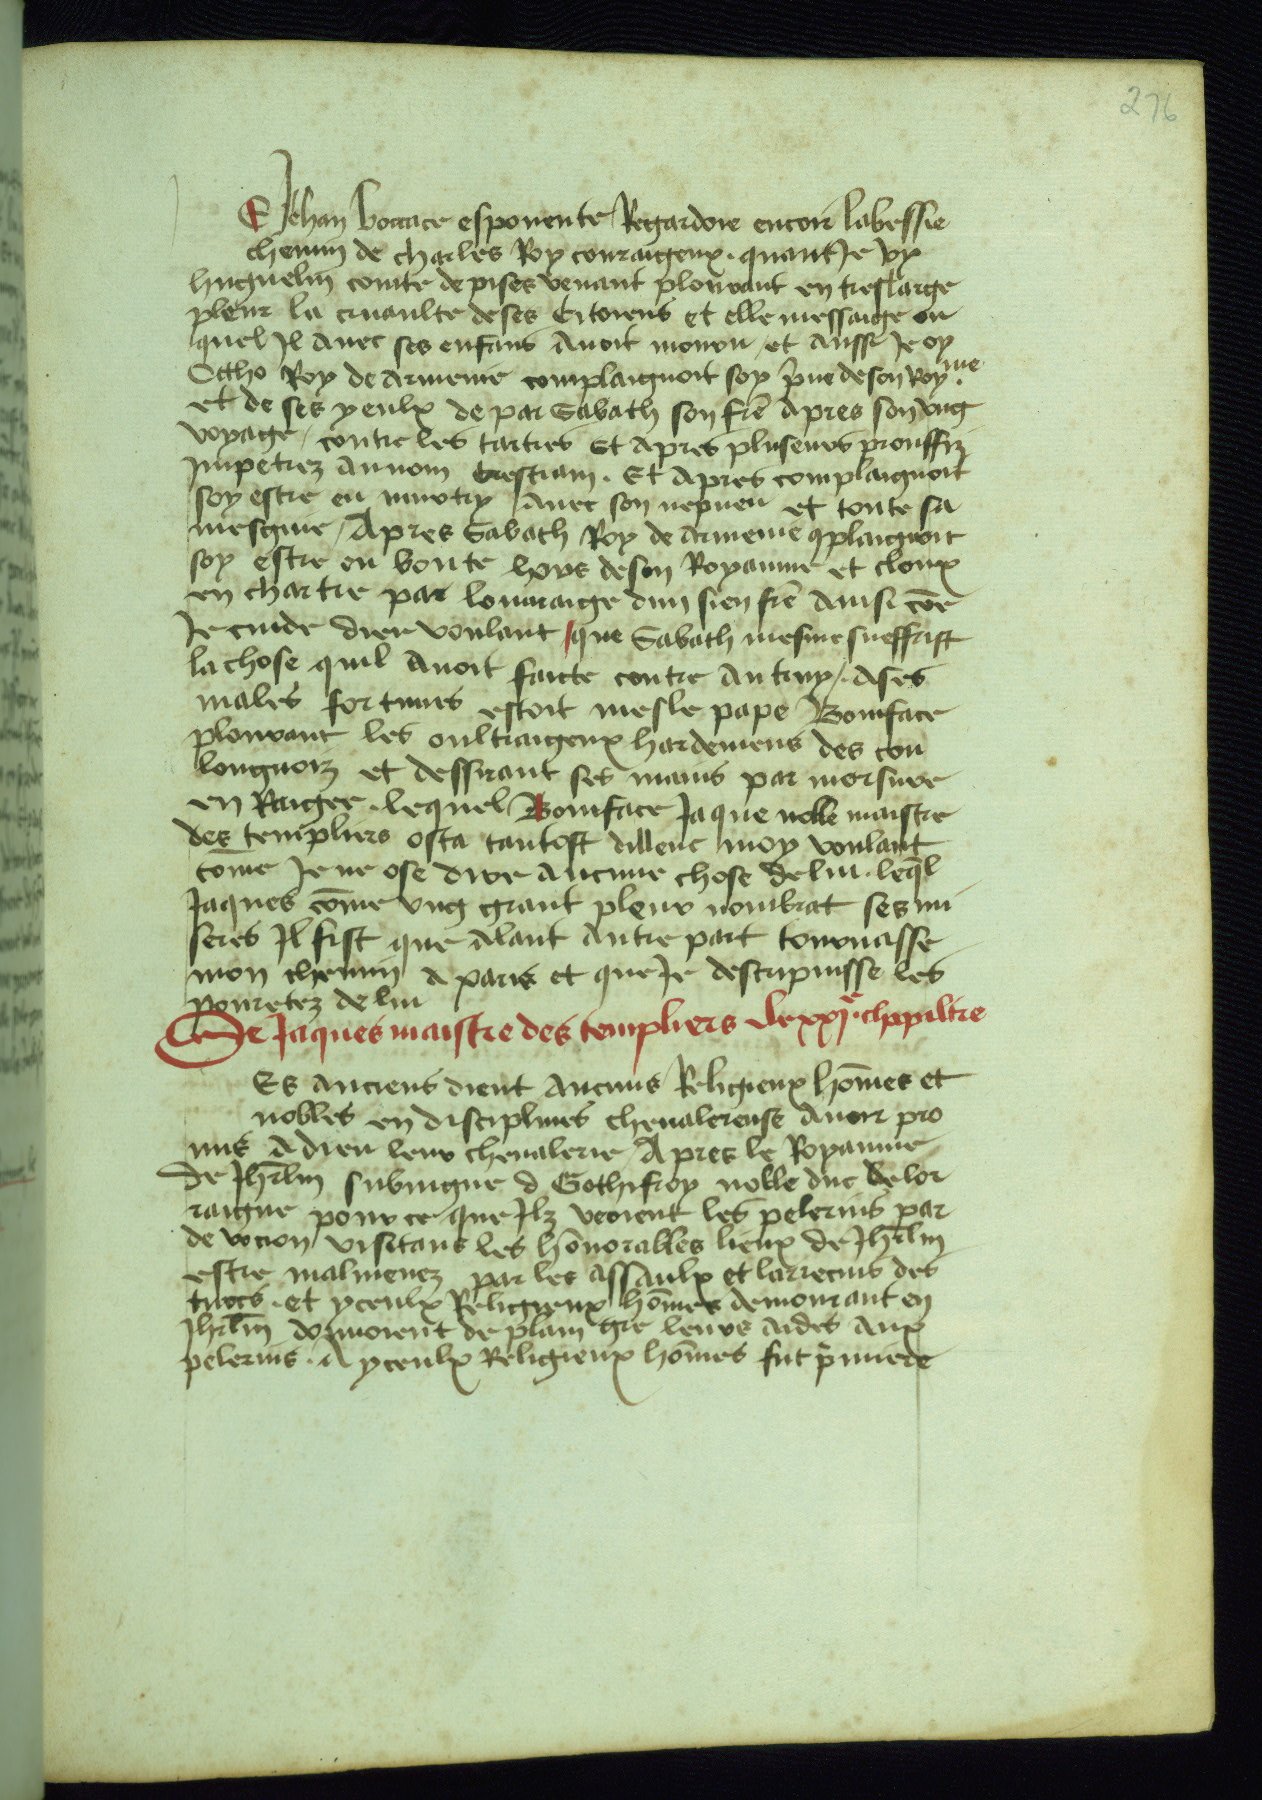 276
E Jehan bocace esponente Regardoie encoir labessie
chemin de charles Roy couraigeux. quant Je vy
huguelin conte de pises venant plourant en treslarge
pleur la cruaulte de ses Citoiens et elle messaige ou
quel Il avec ses enfans Avoit mouru / et Aussi Je oy
Ottho Roy de Armenie complaignoit soy p̃ve de son Roy.me
et de ses yeulx de par Sabath son frẽ Apres son vng
voyage / contre les tartres Et Apres pluseurs prouffiz
Impetrez Au nom crestiam. Et Apres complaignoit
soy estre en Avec son nepueu et toute sa
mesgnie / Apres Sabath Roy de Armenie 9plaignoit
soy estre en boute hors de son Royaume et cloux
en chartre par louuraige dun sien frẽ Ainsi cõe
Je cuide dieu voulant / que Sabath mesme sueffrist
la chose quil Avoit faicte contre Autruy /. A ses
males fortunes estoit mesle pape Boniface
plourant les oultraigeux hardemens des cou
longnoiz et dessirant ses mains par morsure
en Raigee. lequel Boniface Jaque noble maistre
des templiers osta tantost dillenc moy voulant
cõme Je ne ose dire Aucune chose de lui. leq̃l
Jaques cõme vng grant pleur nombrat ses mi
seres Il fist que Alant Autre part tournasse
mon chemin A paris et que Je descripuisse les
pouretez de lui
De Jaques maistre des templiers le xxj.e chapiltre
Es Anciens dient Aucuns Religieux hõmes et
nobles en disciplines chevalereuse Avoir pro
mis A dieu leur chevalerie Apres le Royaume
de Jhrl̃m subiugue d Gothifroy noble duc de lor
raigne pour ce que Ilz veoient les pelerins par
devocion visitans les hõnorables lieux de Jhrl̃m
estre malmenez par les Assaulx et larrecins des
turcs. et yceulx Religieux hõmes demourant en
Jhrl̃m donnoient de plain gre leurs Aides Aux
pelerins. A yceulx Religieux hõmes fut p̃miere